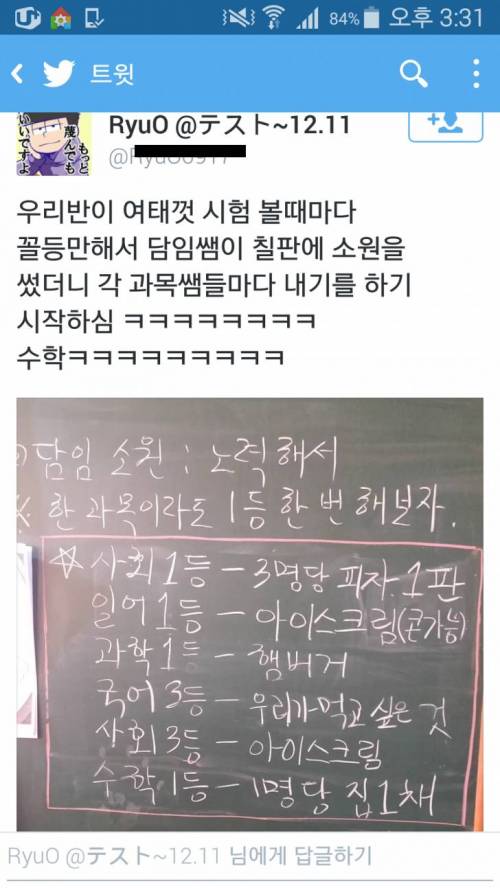 84% 오후 3:31
트윗
RyuO @テスト~12.11
もっと
蔑んでも
いいですよ
우리반이 여태껏 시험 볼때마다
꼴등만해서 담임쌤이 칠판에 소원을
썼더니 각 과목쌤들마다 내기를 하기
시작하심 ㅋㅋㅋㅋㅋㅋㅋㅋ
수학ㅋㅋㅋㅋㅋㅋㅋㅋㅋ
담임 소원 : 노력해서
※ 한 과목이라도 1등 한 번 해보자.
☆ 사회 1등 - 3명당 피자 1판
일어 1등 - 아이스크림(콘가능)
과학 1등 - 햄버거
국어 3등 - 우리가 먹고 싶은 것
사회 3등 - 아이스크림
수학 1등 - 1명당 집 1채
RyuO @テスト~12.11 님에게 답글하기